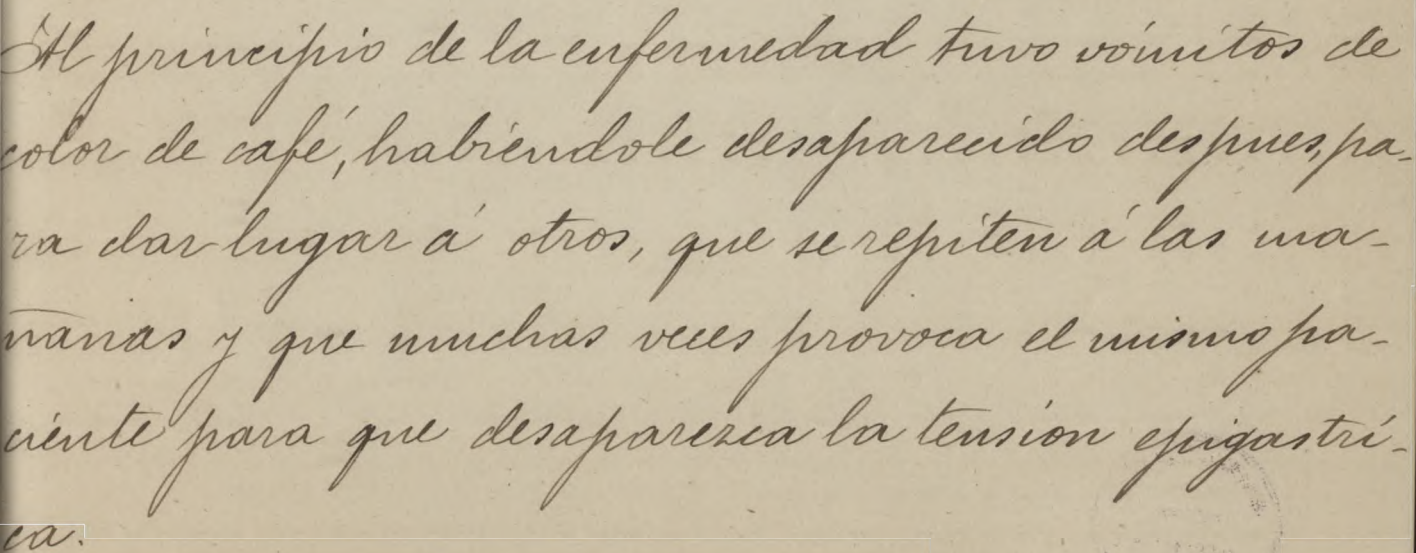 Al principio de la enfermedad tuvo vómitos de
color de café, habiéndole desaparecido despues, pa-
ra dar lugar á otros, que se repiten á las ma-
ñanas y que muchas veces provoca el mismo pa-
ciente para que desaparezca la tensión epigastri-
ca.